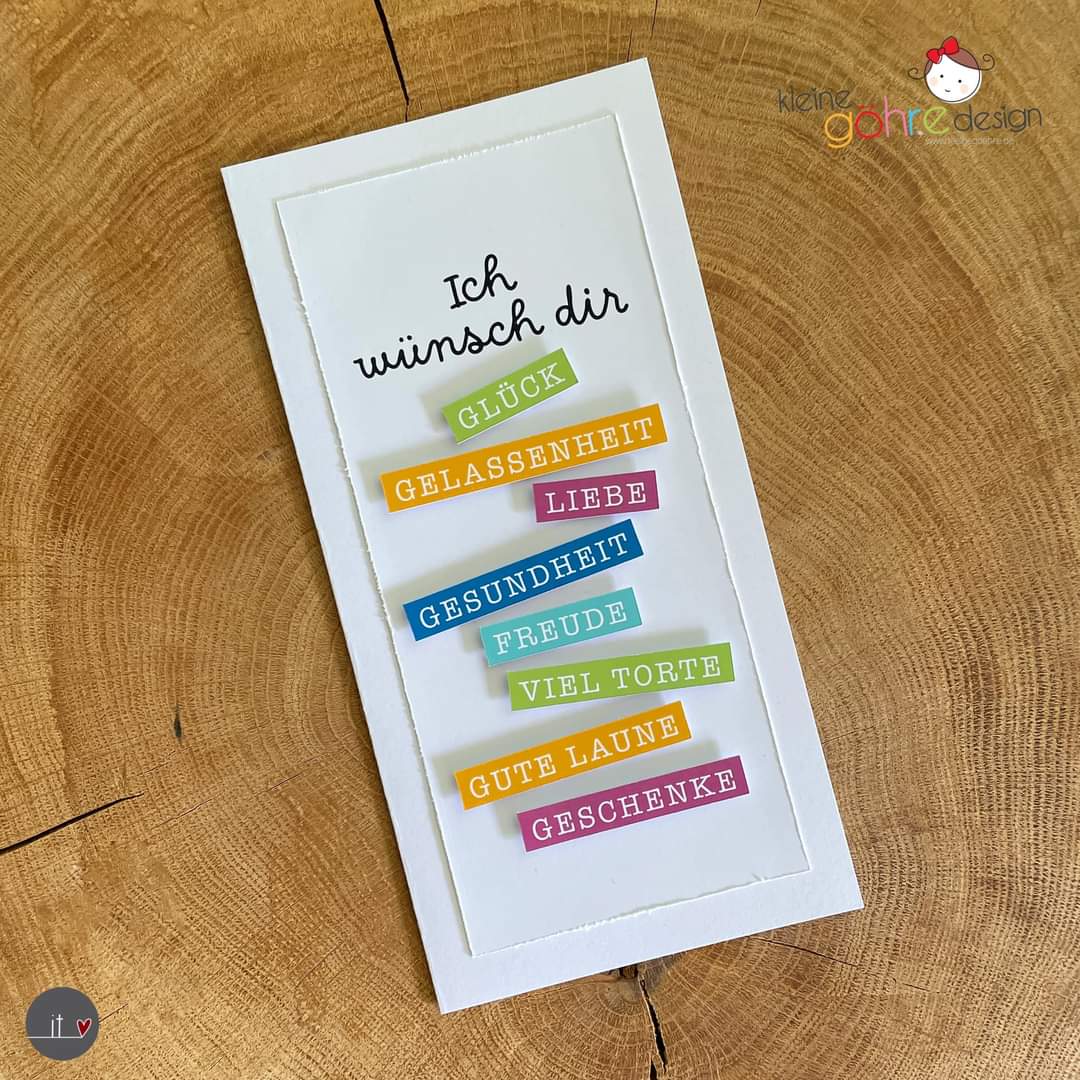 kleine
göhre design
www.kleinegoehre.de
Ich
wünsch dir
GLÜCK
GELASSENHEIT
LIEBE
GESUNDHEIT
FREUDE
VIEL TORTE
GUTE LAUNE
GESCHENKE
it